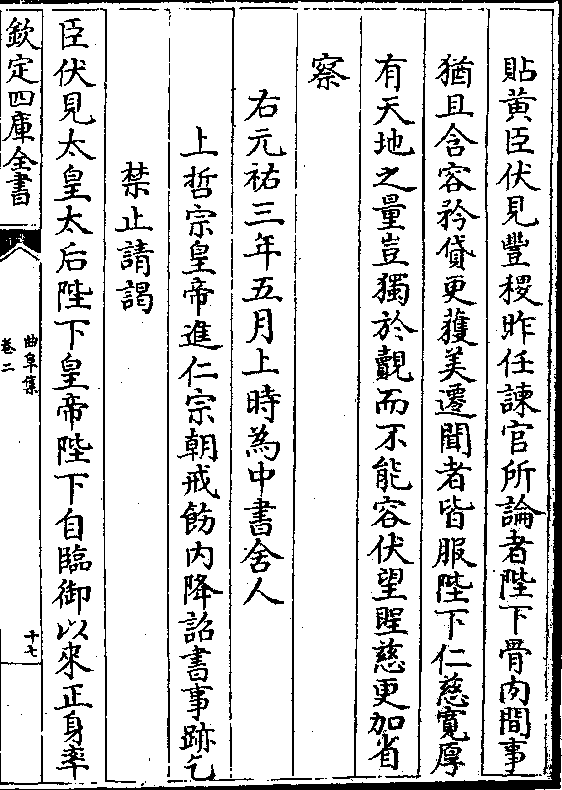 貼黃臣伏見豐稷昨任諫官所論者陛下骨肉間事
猶且含容矜貸更獲美遷聞者皆服陛下仁慈寬厚
有天地之量豈獨於覿而不能容伏望聖慈更加省
察
右元祐三年五月上時為中書舍人
上哲宗皇帝進仁宗朝戒飭内降詔書事跡乞
禁止請謁
臣伏見太皇太后陛下皇帝陛下自臨御以來正身率
欽定四庫全書
曲阜集
卷二
十七